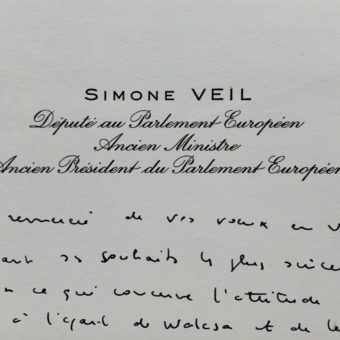 SIMONE VEIL
Député au Parlement Européen
Ancien Ministre
Ancien Président du Parlement Européen
remercié de vos vœux en v
ses souhaits les plus sincè
ce qui concerne l'attitude
à l'égard de Walesa et de le